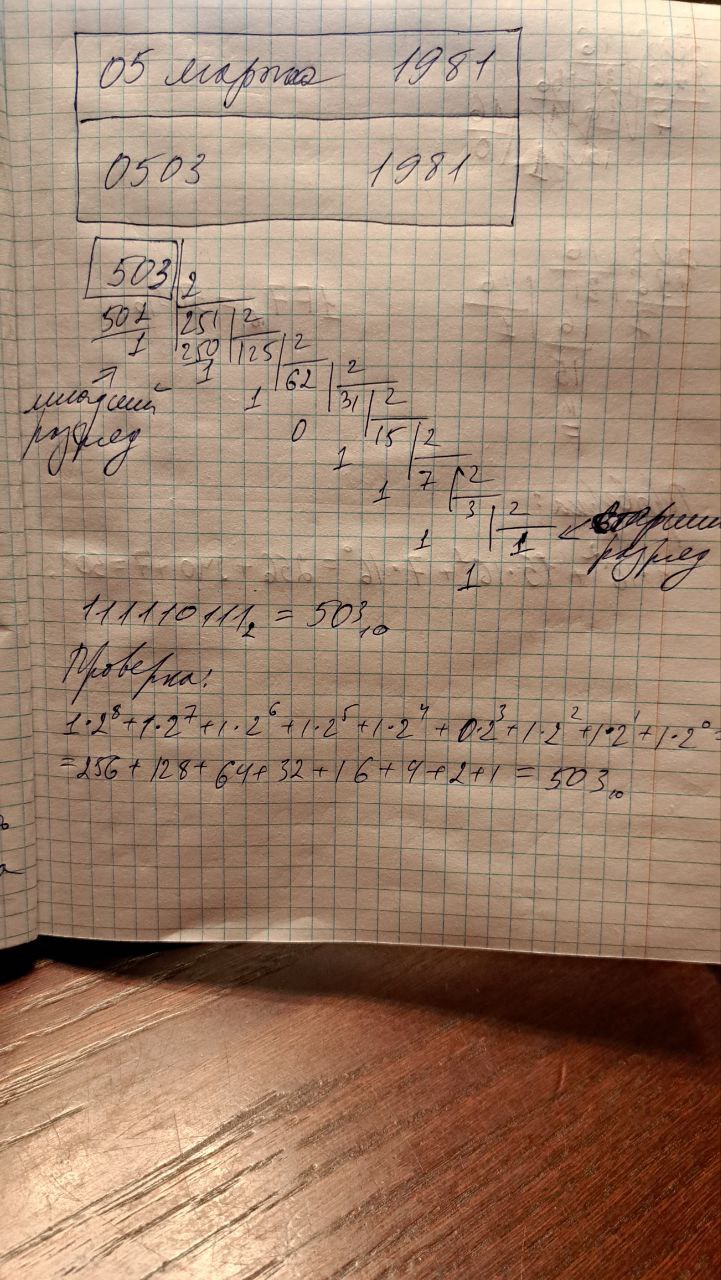 05 марта 1981
0503 1981
503 2
501 251 2
1 250 125 2
1 62 2
1 31 2
0 15 2
1 7 2
1 3 2
1 1
1
младший
разряд
старший
разряд
111110111₂ = 503₁₀
Проверка:
1·2⁸+1·2⁷+1·2⁶+1·2⁵+1·2⁴+0·2³+1·2²+1·2¹+1·2⁰=
=256+128+64+32+16+4+2+1=503₁₀